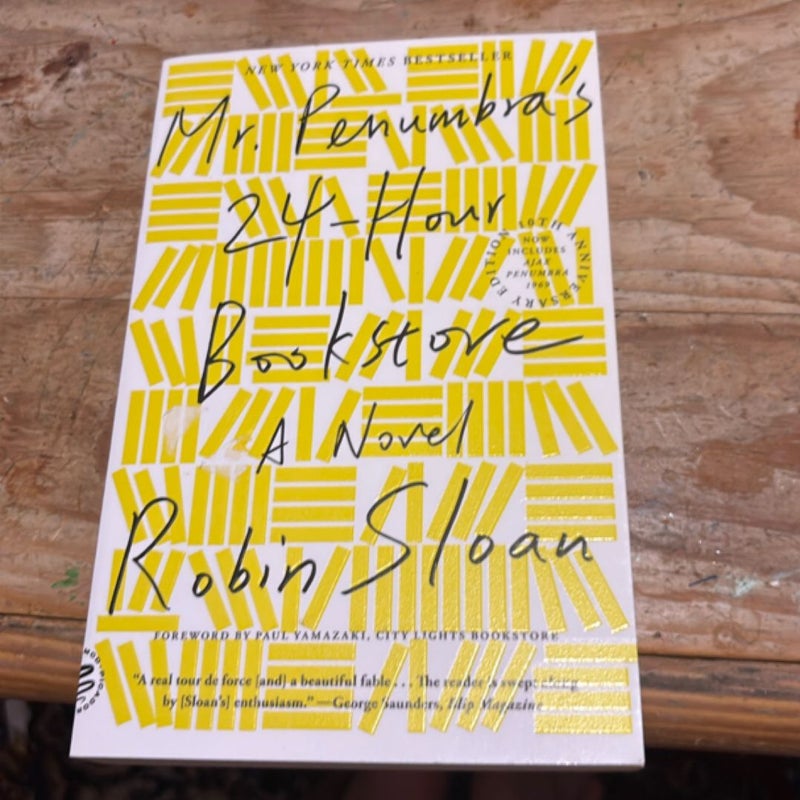 NEW YORK TIMES BESTSELLER
Mr. Penumbra's
24-Hour
10TH ANNIVERSARY EDITION
NOW
INCLUDES
AJAX
PENUMBRA
1969
Bookstore
A Novel
Robin Sloan
FOREWORD BY PAUL YAMAZAKI, CITY LIGHTS BOOKSTORE
“A real tour de force [and] a beautiful fable . . . The reader is swept along
by [Sloan's] enthusiasm.” —George Saunders, Flip Magazine